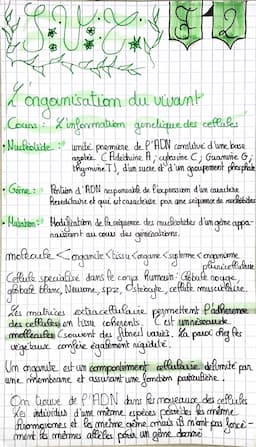 S.V.T.
E 2
L'organisation du vivant
Cours : L'information genetique des cellules
• Nucléotide : unité première de l'ADN constitué d'une base
azotée (Adénine A, cytosine C, Guanine G,
thymine T), d'un sucre et d'un groupement phosphate
• Gène : Portion d'ADN responsable de l'expression d'un caractère
héréditaire et qui est caractérisé par une séquence de nucléotides
• Mutation : Modification de la séquence des nucléotides d'un gène appa-
raissant au cours des générations.
molécule < organite < tissu < organe < système < organisme
pluricellulaire
Cellule spécialisé dans le corps humain : Globule rouge,
globule blanc, Neurone, spz, Ostéocyte, cellule musculaire.
Les matrices extracellulaire permettent l'adhérence
des cellules en tissu cohérents. C'est un réseau de
molécules (souvent des fibres) varié. La paroi chez les
végétaux confère également rigidité.
Un organite est un compartiment cellulaire délimité par
une membrane et assurant une fonction particulière.
On trouve de l'ADN dans les noyaux des cellules
Les individus d'une même espèces possèdes les même
chromosomes et les même gène mais ils n'ont pas forcé-
ment les mêmes allèles pour un gène donné